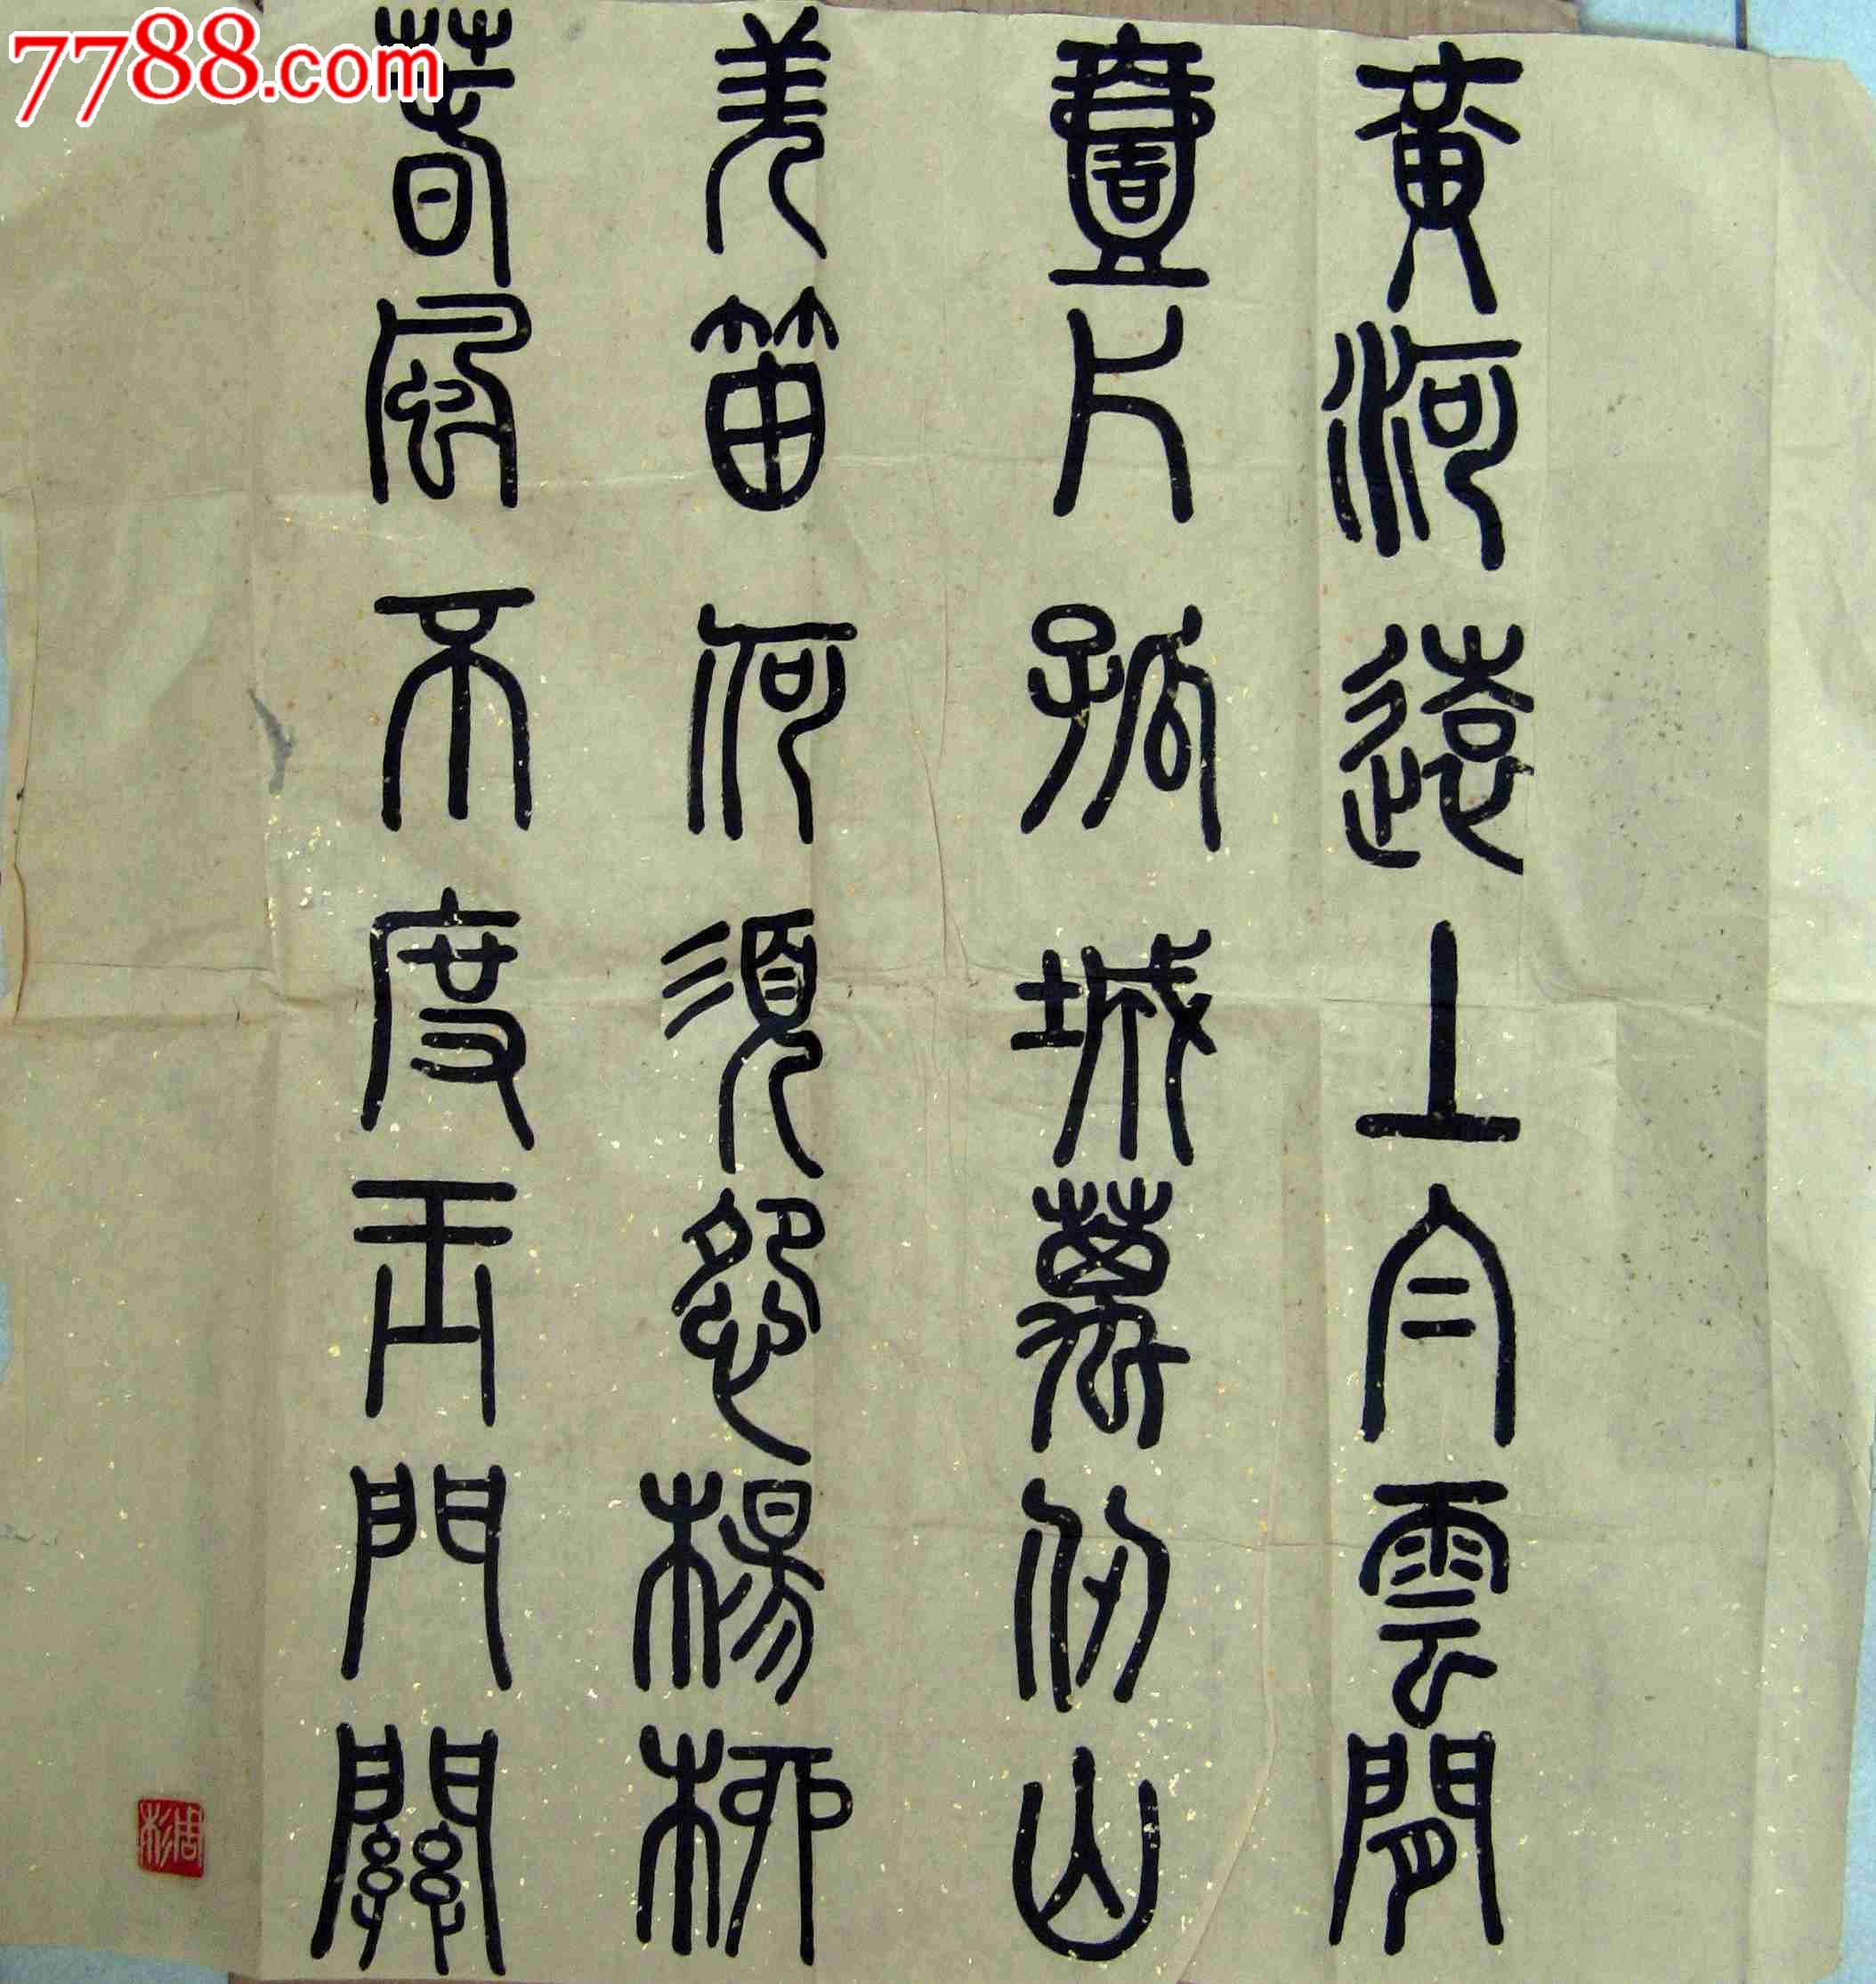 7788.com
黃河遠上白雲閒
壹片孤城萬仞山
羌笛何須怨楊柳
春風不度玉門關